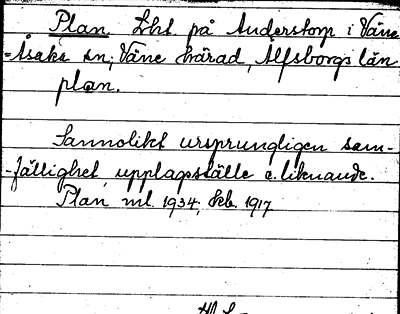 Plan Lht. på Anderstorp i Väne
-Åsaka sn; Väne härad, Älfsborgs län
plan.
Sannolikt ursprungligen sam-
-fällighet, upplagsställe e. liknande.
Plan ml. 1934, kb. 1917